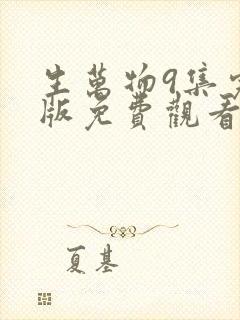 生萬物9集完
版免費觀看
夏基